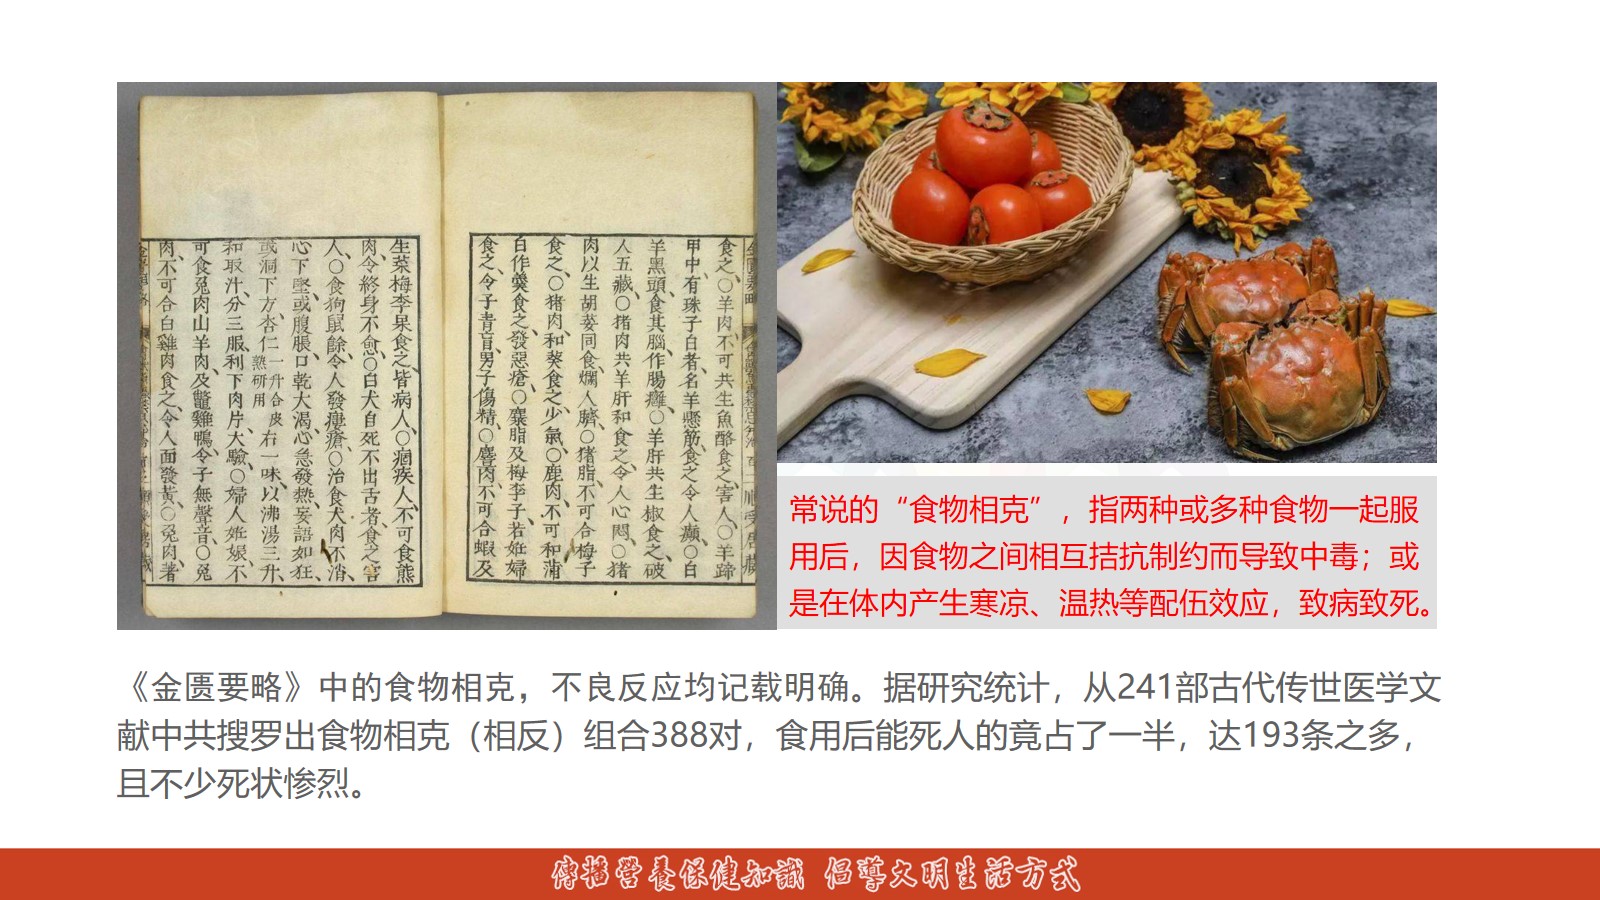 食之〇羊肉不可共生魚酪食之害人〇羊蹄
甲中有珠子白者名羊懸筋食之令人癲〇白
羊黑頭食其腦作腸癰〇羊肝共生椒食之破
人五藏〇猪肉共羊肝和食之令人心悶〇猪
肉以生胡荽同食爛人臍〇猪脂不可合梅子
食之〇猪肉和葵食之少氣〇鹿肉不可和蒲
白作羹食之發惡瘡〇麋脂及梅李子若妊婦
食之令子青盲男子傷精〇麞肉不可合蝦及
生菜梅李果食之皆病人〇痼疾人不可食熊
肉令終身不愈〇白犬自死不出舌者食之害
人〇食狗鼠餘令人發瘻瘡〇治食犬肉不消
心下堅或腹脹口乾大渴心急發熱妄語如狂
或洞下方杏仁一升合皮熟研用右一味以沸湯三升
和取汁分三服利下肉片大驗〇婦人妊娠不
可食兔肉山羊肉及鱉雞鴨令子無聲音〇兔
肉不可合白雞肉食之令人面發黃〇兔肉著
常说的“食物相克”，指两种或多种食物一起服
用后，因食物之间相互拮抗制约而导致中毒；或
是在体内产生寒凉、温热等配伍效应，致病致死。
《金匮要略》中的食物相克，不良反应均记载明确。据研究统计，从241部古代传世医学文
献中共搜罗出食物相克（相反）组合388对，食用后能死人的竟占了一半，达193条之多，
且不少死状惨烈。
傳播營養保健知識 倡導文明生活方式